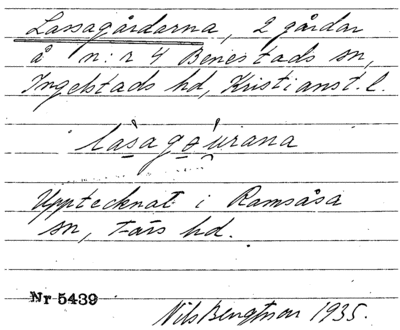 Lassagårdarna, 2 gårdar
å n:r 4 Benestads sn,
Ingelstads hd, Kristianst. l.
làsagɑ́urana
Upptecknat i Ramsåsa
sn, Färs hd.
Nr 5439
Nils Bengtson 1935.